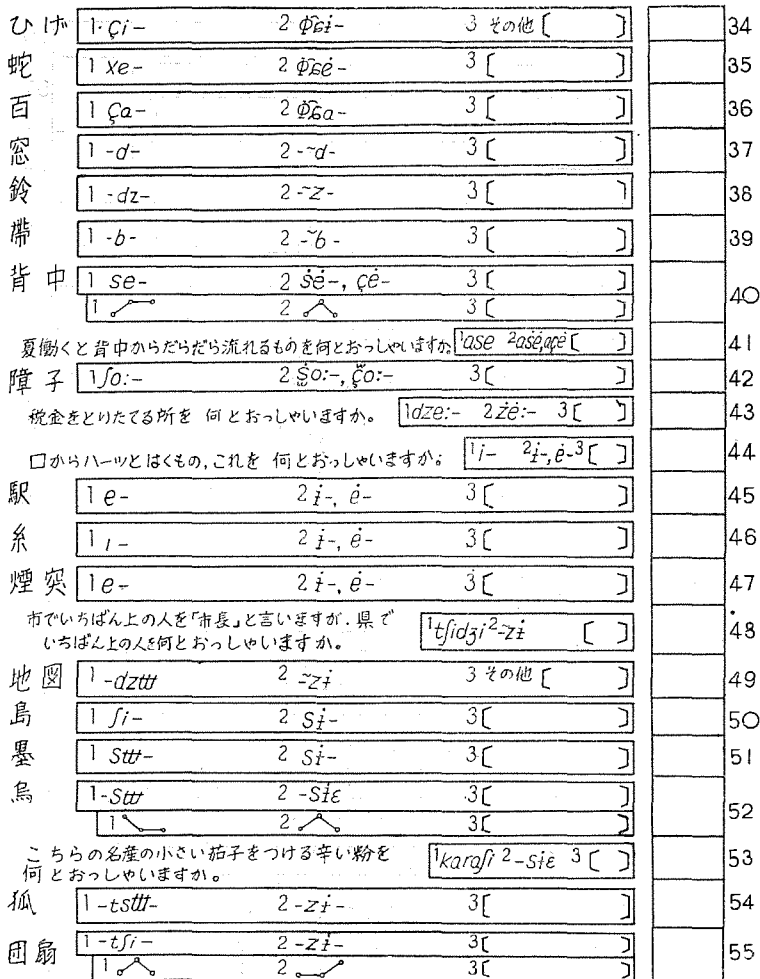 ひげ 1. çi- 2 Φ͡sɨ- 3 その他 [ ] 34
蛇 1 xe- 2 Φ͡sė- 3 [ ] 35
百 1 ça- 2 Φ͡sa- 3 [ ] 36
窓 1 -d- 2 -~d- 3 [ ] 37
鈴 1 -dz- 2 -~z- 3 [ ] 38
帯 1 -b- 2 -~b- 3 [ ] 39
背中 1 se- 2 ṡė-, çė- 3 [ ] 40
1 2 3 [ ]
夏働くと背中からだらだら流れるものを何とおっしゃいますか。 1ase 2aṡė,açė [ ] 41
障子 1 ʃo:- 2 s̫̈o:-, ç̫̈o:- 3 [ ] 42
税金をとりたてる所を 何とおっしゃいますか。 1dze:- 2żė:- 3 [ ] 43
口からハーッとはくもの,これを 何とおっしゃいますか。 1i- 2ɨ-,ė- 3 [ ] 44
駅 1 e- 2 ɨ-, ė- 3 [ ] 45
糸 1 ı- 2 ɨ-, ė- 3 [ ] 46
煙突 1 e- 2 ɨ-, ė- 3 [ ] 47
市でいちばん上の人を「市長」と言いますが、県で
いちばん上の人を何とおっしゃいますか。 1tʃidʒi 2-~zɨ [ ] 48
地図 1 -dzɯ 2 -~zɨ 3 その他 [ ] 49
島 1 ʃi- 2 sɨ- 3 [ ] 50
墨 1 sɯ- 2 sɨ- 3 [ ] 51
烏 1 -sɯ 2 -sɨɛ 3 [ ] 52
1 2 3 [ ]
こちらの名産の小さい茄子をつける辛い粉を
何とおっしゃいますか。 1karaʃi 2-sɨɛ 3 [ ] 53
狐 1 -tsɯ- 2 -zɨ- 3 [ ] 54
団扇 1 -tʃi- 2 -zɨ- 3 [ ] 55
1 2 3 [ ]